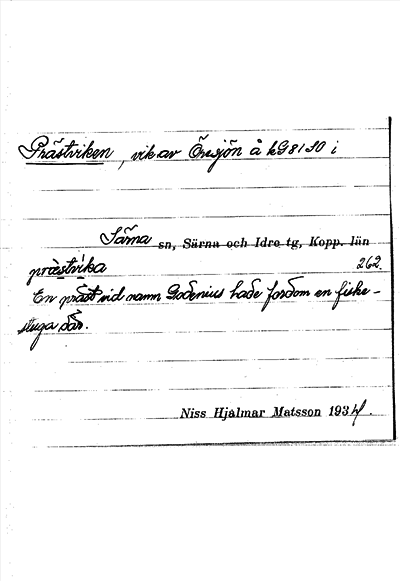 Prästviken, vik av Öresjön å kG 81 S0 i
Särna sn, Särna och Idre tg, Kopp. län
præstvika 262.
En präst vid namn Godenius hade fordom en fiske-
stuga där.
Niss Hjalmar Matsson 1934.